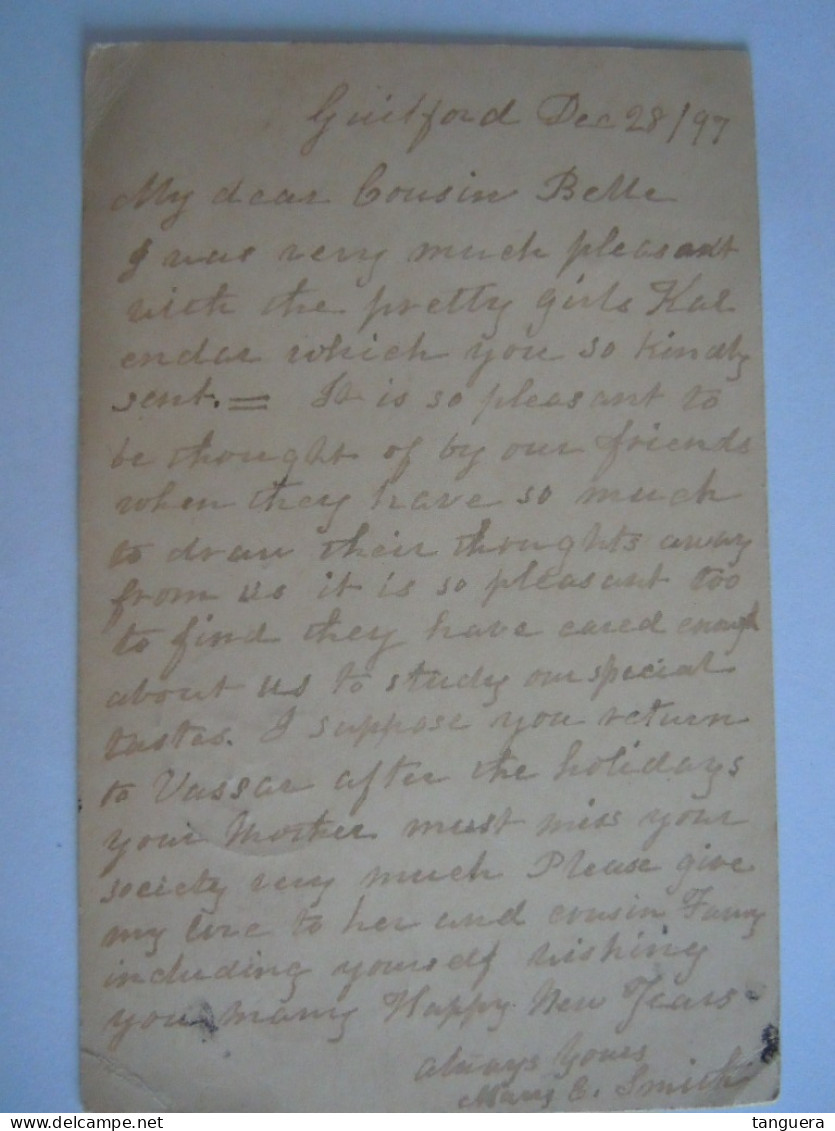 Guilford Dec 28/97
My dear Cousin Belle
I was very much pleasant
with the pretty girls Kal
endar which you so kindly
sent. = It is so pleasant to
be thought of by our friends
when they have so much
to draw their thoughts away
from us it is so pleasant too
to find they have cared enough
about us to study our special
tastes. I suppose you return
to Vassar after the holidays
your Mother must miss your
society very much Please give
my love to her and cousin Fanny
including yourself wishing
you many Happy New Years
always yours
Mary E. Smith
tanguera